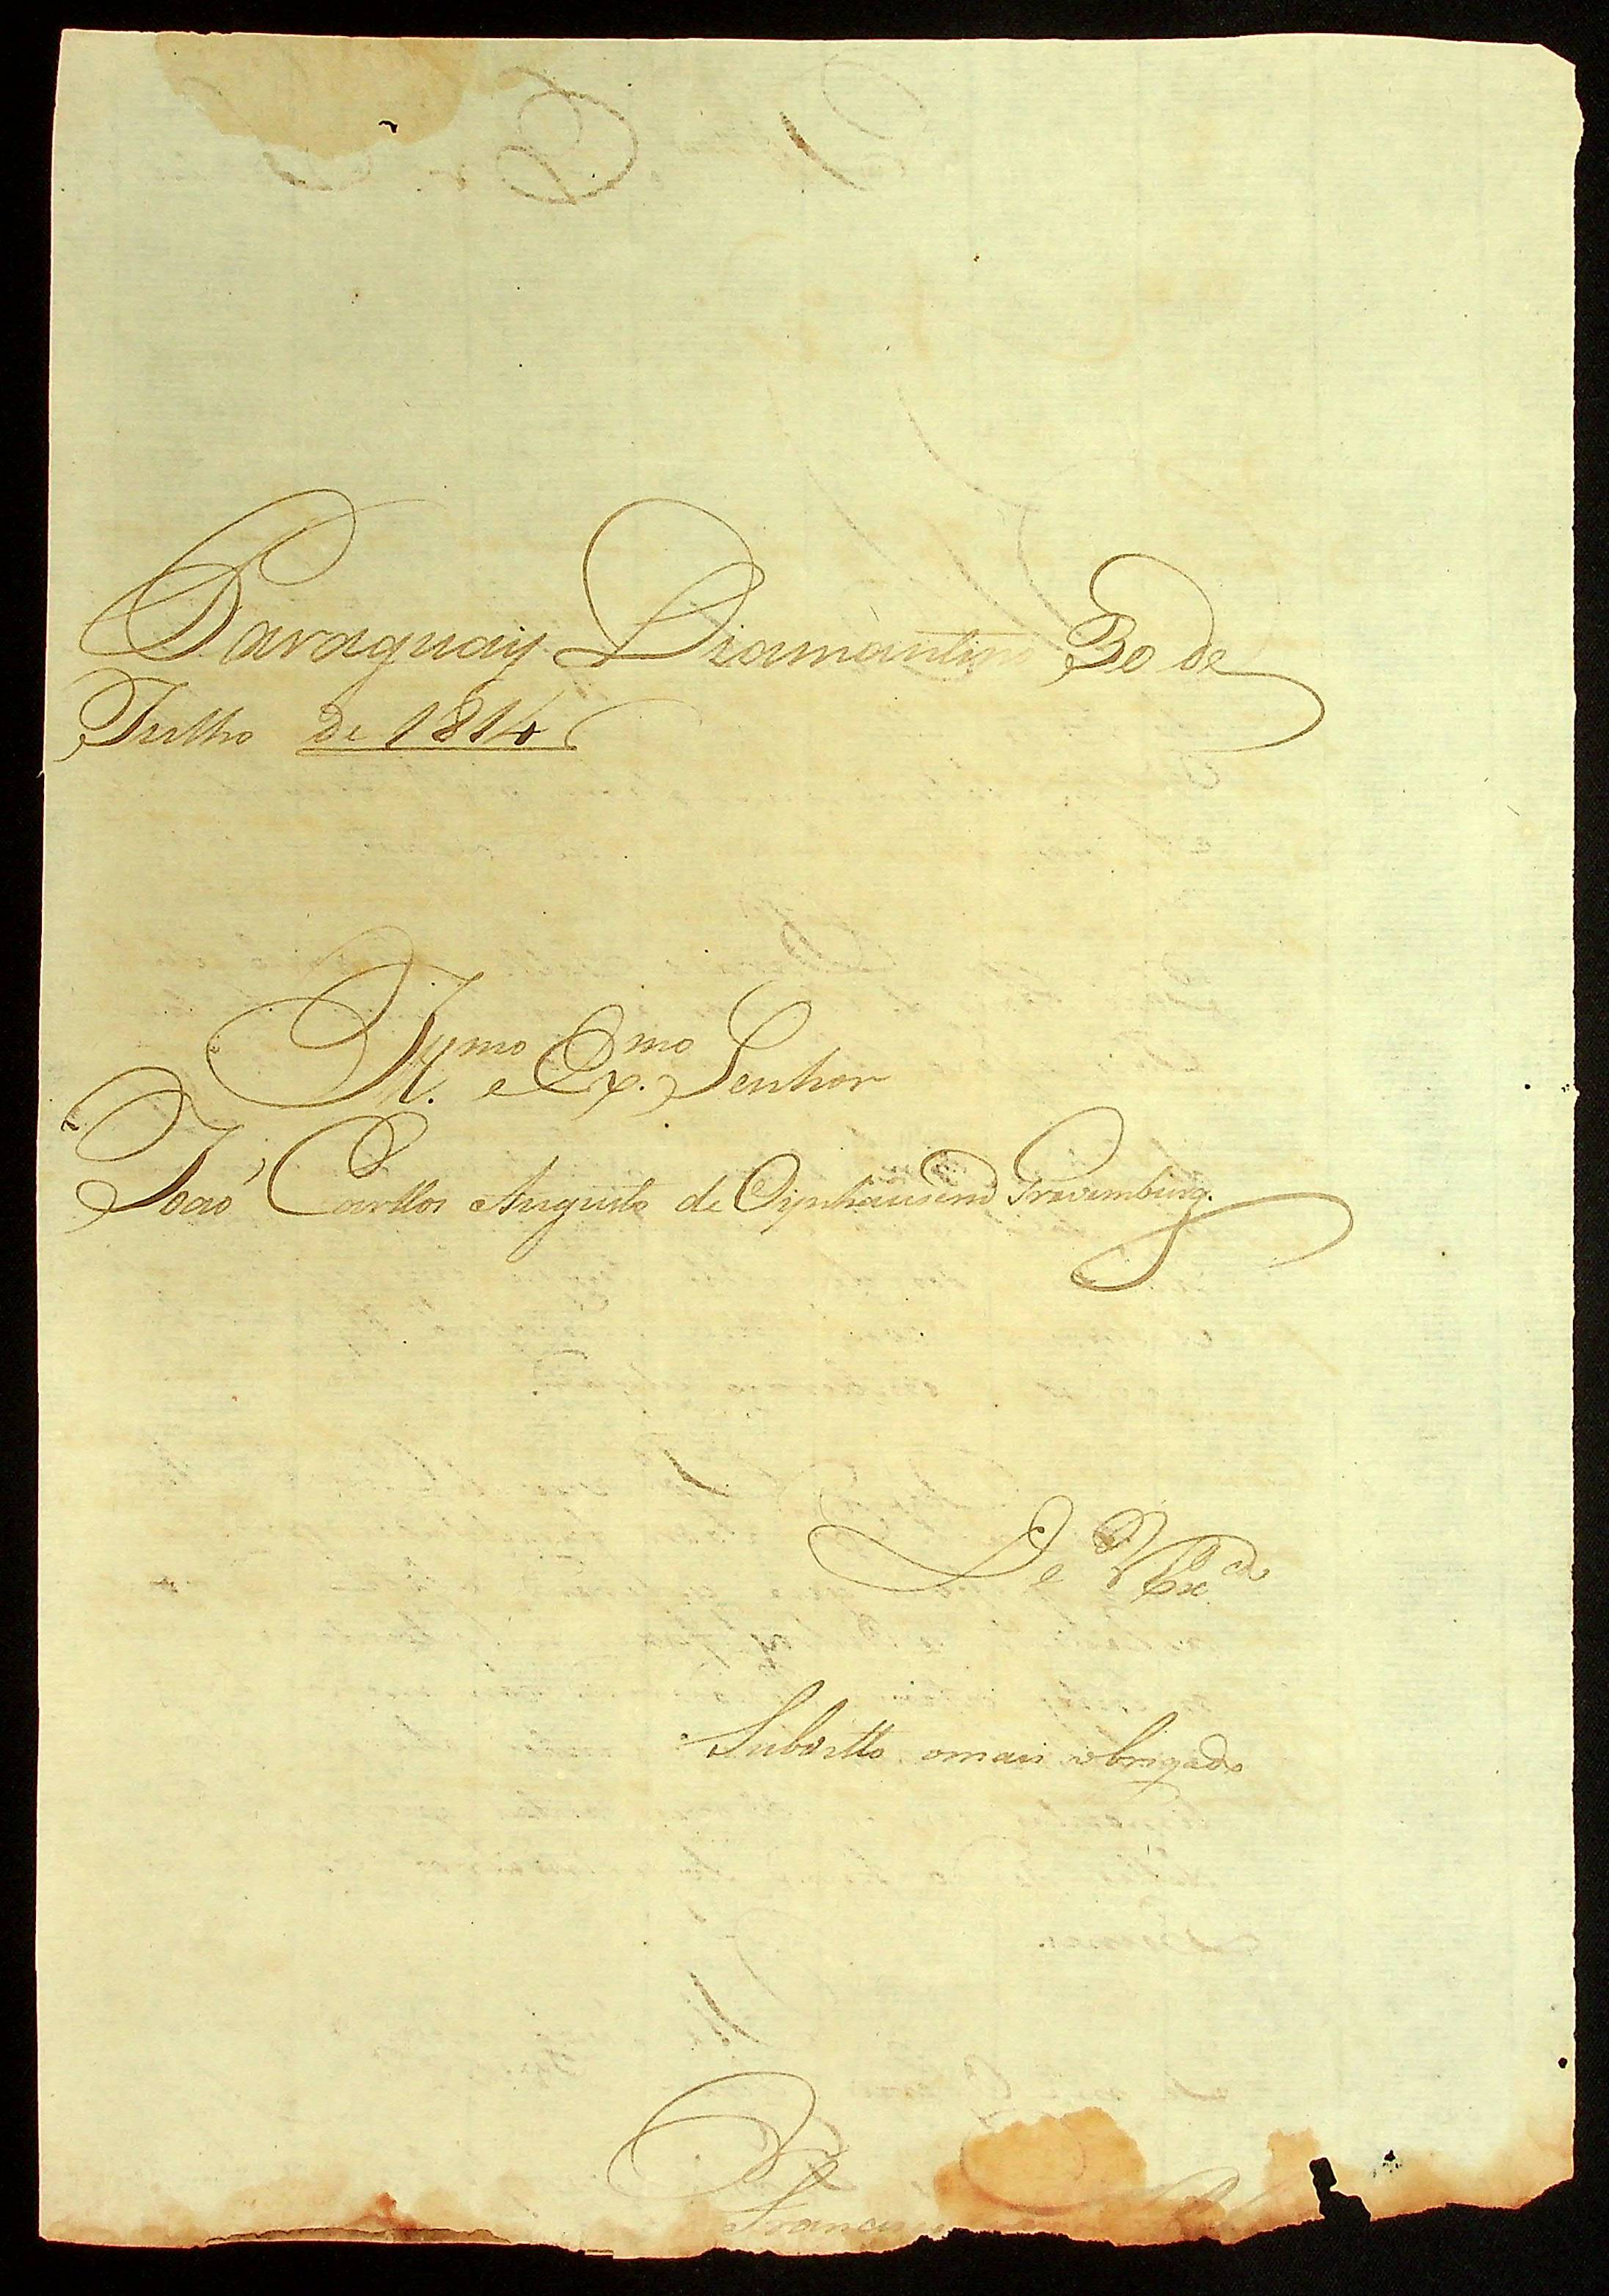 Paraguay Diamantino 30 de
Julho de 1814
Ill.mo e Ex.mo Senhor
Joaõ Carllos Augusto de Oÿnhausend Gravemburg.
De V Ex.ca
Subditto omais obrigado
Francis